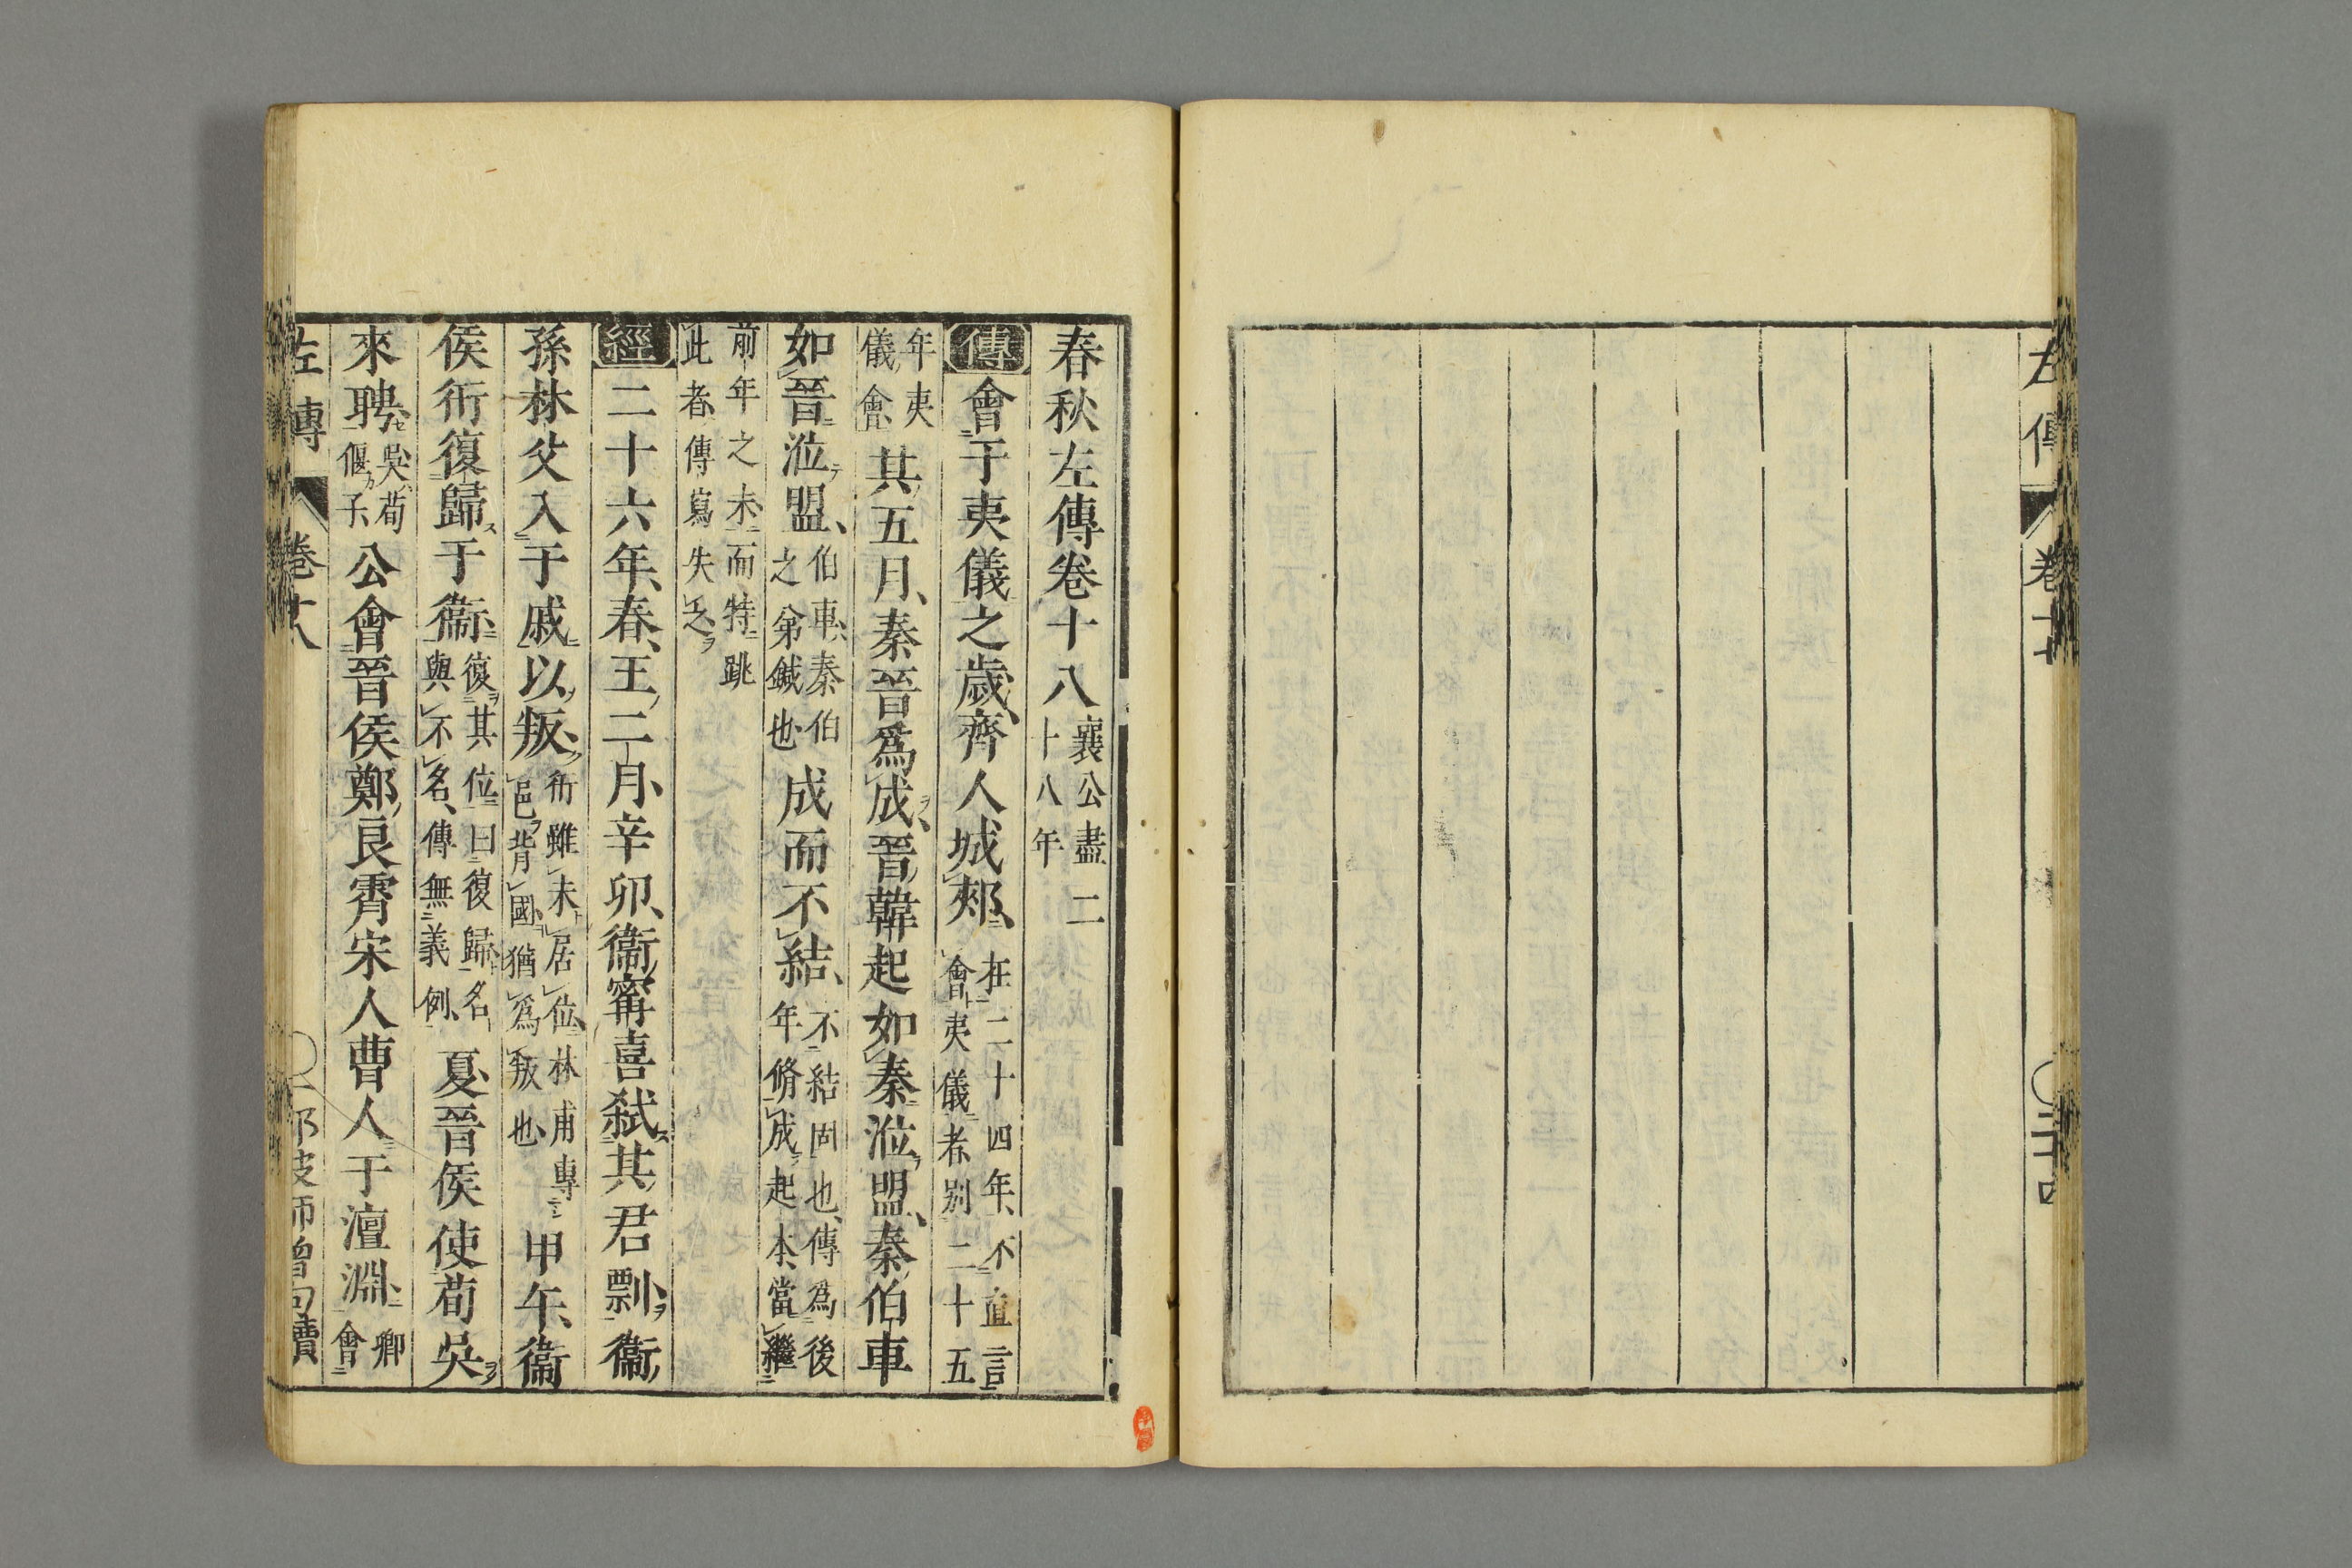 左傳 卷十 〇二十四
春秋左傳卷十八 襄公盡二十八年
傳會于夷儀之歲齊人城郟 在二十四年不直言會夷儀者別二十五
年夷儀會 其五月秦晉爲成晉韓起如秦涖盟秦伯車
如晉涖盟 伯車秦伯之弟鍼也 成而不結 不結固也傳爲後年脩成起本當繼
前年之末而特跳此者傳寫失之
經二十六年春王二月辛卯衞甯喜弒其君剽衞
孫林父入于戚以叛 衎雖未居位林甫專邑背國猶爲叛也 甲午衞
侯衎復歸于衞 復其位曰復歸名與不名傳無義例 夏晉侯使荀吳
來聘 吳荀偃子 公會晉侯鄭良霄宋人曹人于澶淵 卿會
左傳 卷十八 〇一 那波師曾句讀